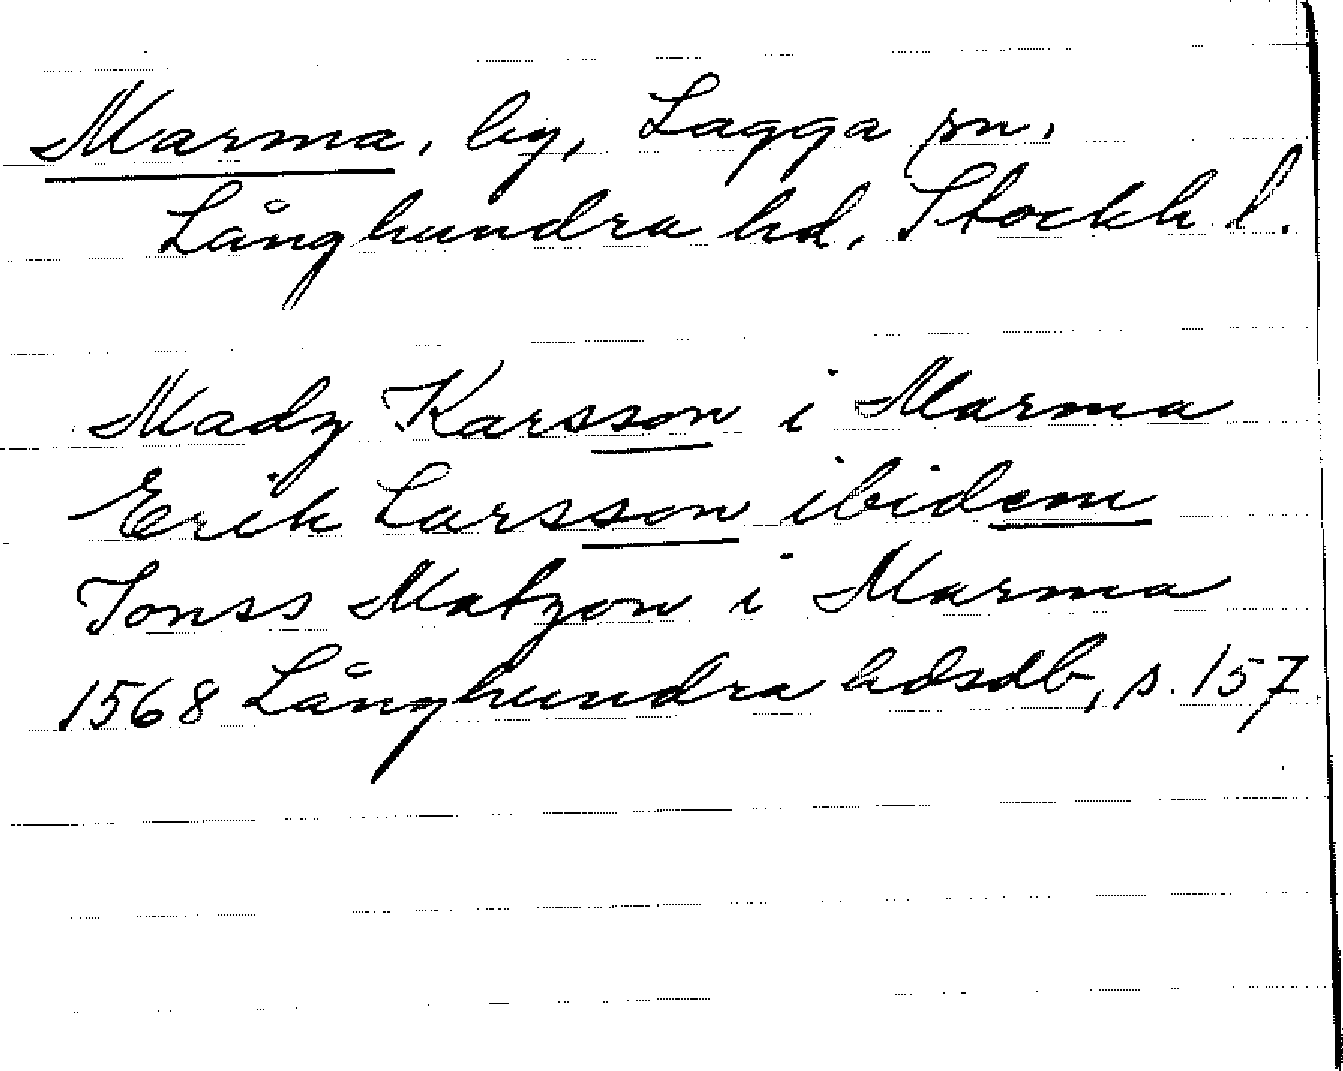 Marma, by, Lagga sn.
Långhundra hd, Stockh l.
Madz Karsson i Marma
Erik Larsson ibidem
Jonss Matzon i Marma
1568 Långhundra hdsdb, s. 157